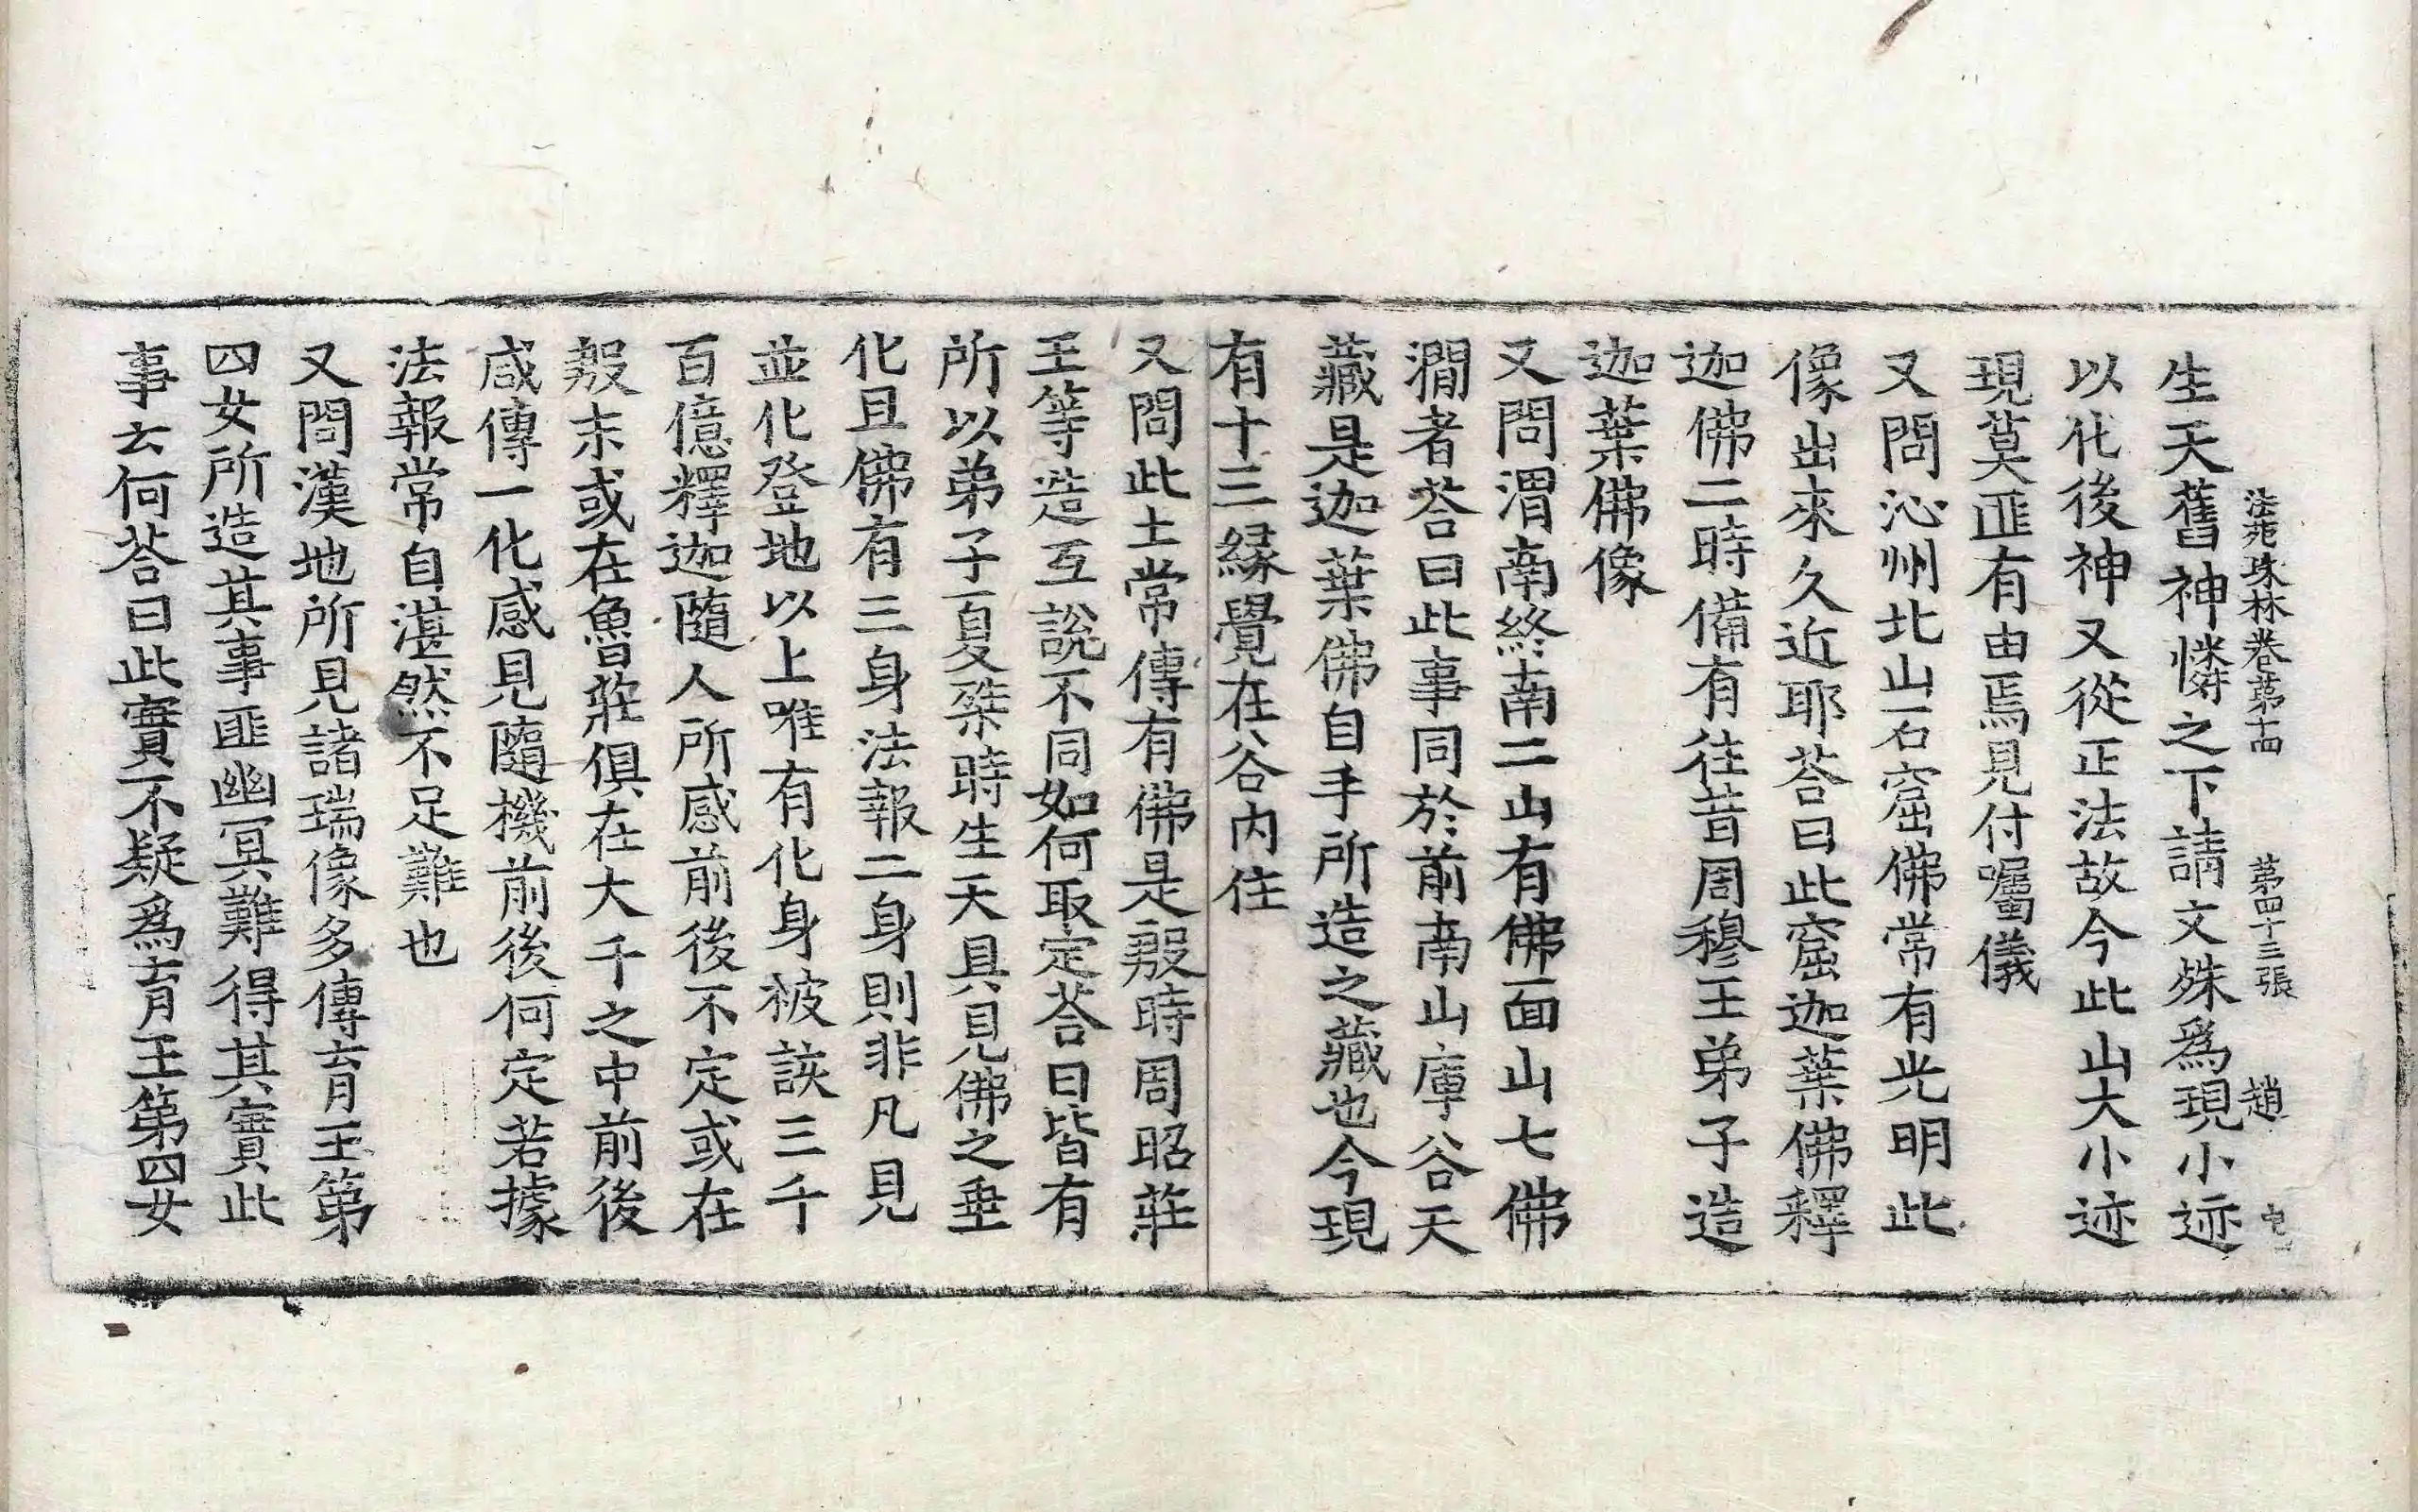 法苑珠林卷第十四 第四十三張 趙
生天舊神憐之下請文殊爲現小迹
以化後神又從正法故今此山大小迹
現莫匪有由焉見付囑儀
又問沁州北山石窟佛常有光明此
像出來久近耶荅曰此窟迦葉佛釋
迦佛二時備有往昔周穆王弟子造
迦葉佛像
又問渭南終南二山有佛面山七佛
澗者荅曰此事同於前南山庫谷天
藏是迦葉佛自手所造之藏也今現
有十三緣覺在谷内住
又問此土常傳有佛是殷時周昭莊
王等造互說不同如何取定荅曰皆有
所以弟子夏桀時生天具見佛之垂
化且佛有三身法報二身則非凡見
並化登地以上唯有化身被該三千
百億釋迦隨人所感前後不定或在
殷末或在魯莊俱在大千之中前後
咸傳一化感見隨機前後何定若據
法報常自湛然不足難也
又問漢地所見諸瑞像多傳育王第
四女所造其事匪幽冥難得其實此
事云何荅曰此實不疑爲育王第四女